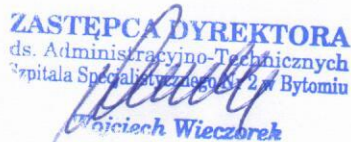 ZASTĘPCA DYREKTORA
ds. Administracyjno-Technicznych
Szpitala Specjalistycznego Nr 2 w Bytomiu
Wojciech Wieczorek